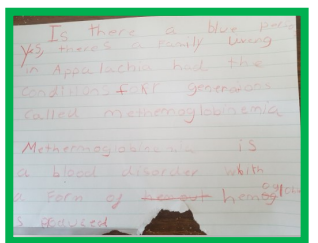 Is there a blue
Yes, there's a family living
in Appalachia had the
conditions for generations
called methemoglobinemia
Methemoglobinemia is
a blood disorder which
a form of hemoglo
s produced